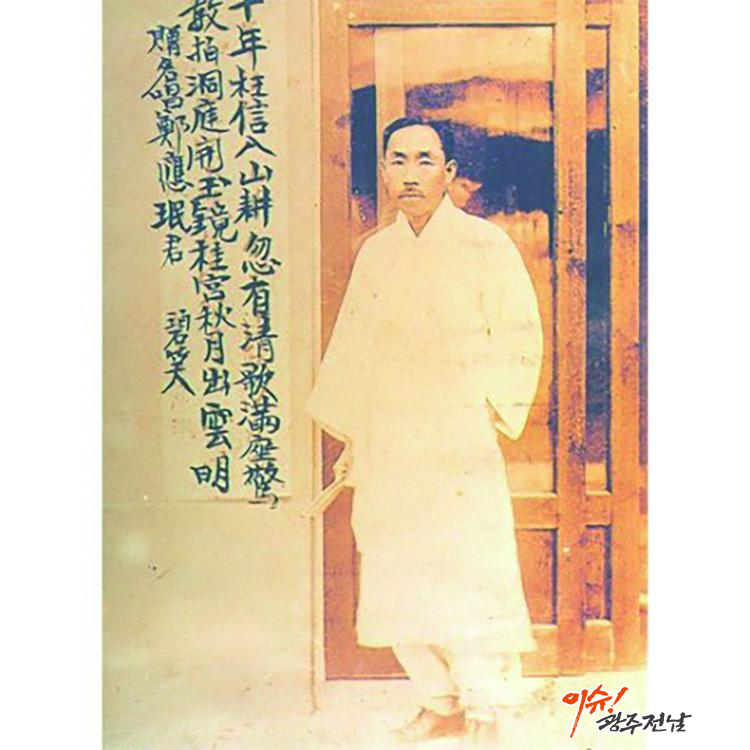 十年枉信入山耕忽有清歌滿座驚
數拍洞庭開玉鏡桂宮秋月出雲明
贈名唱鄭應珉君
碧笑
이슈!
광주전남